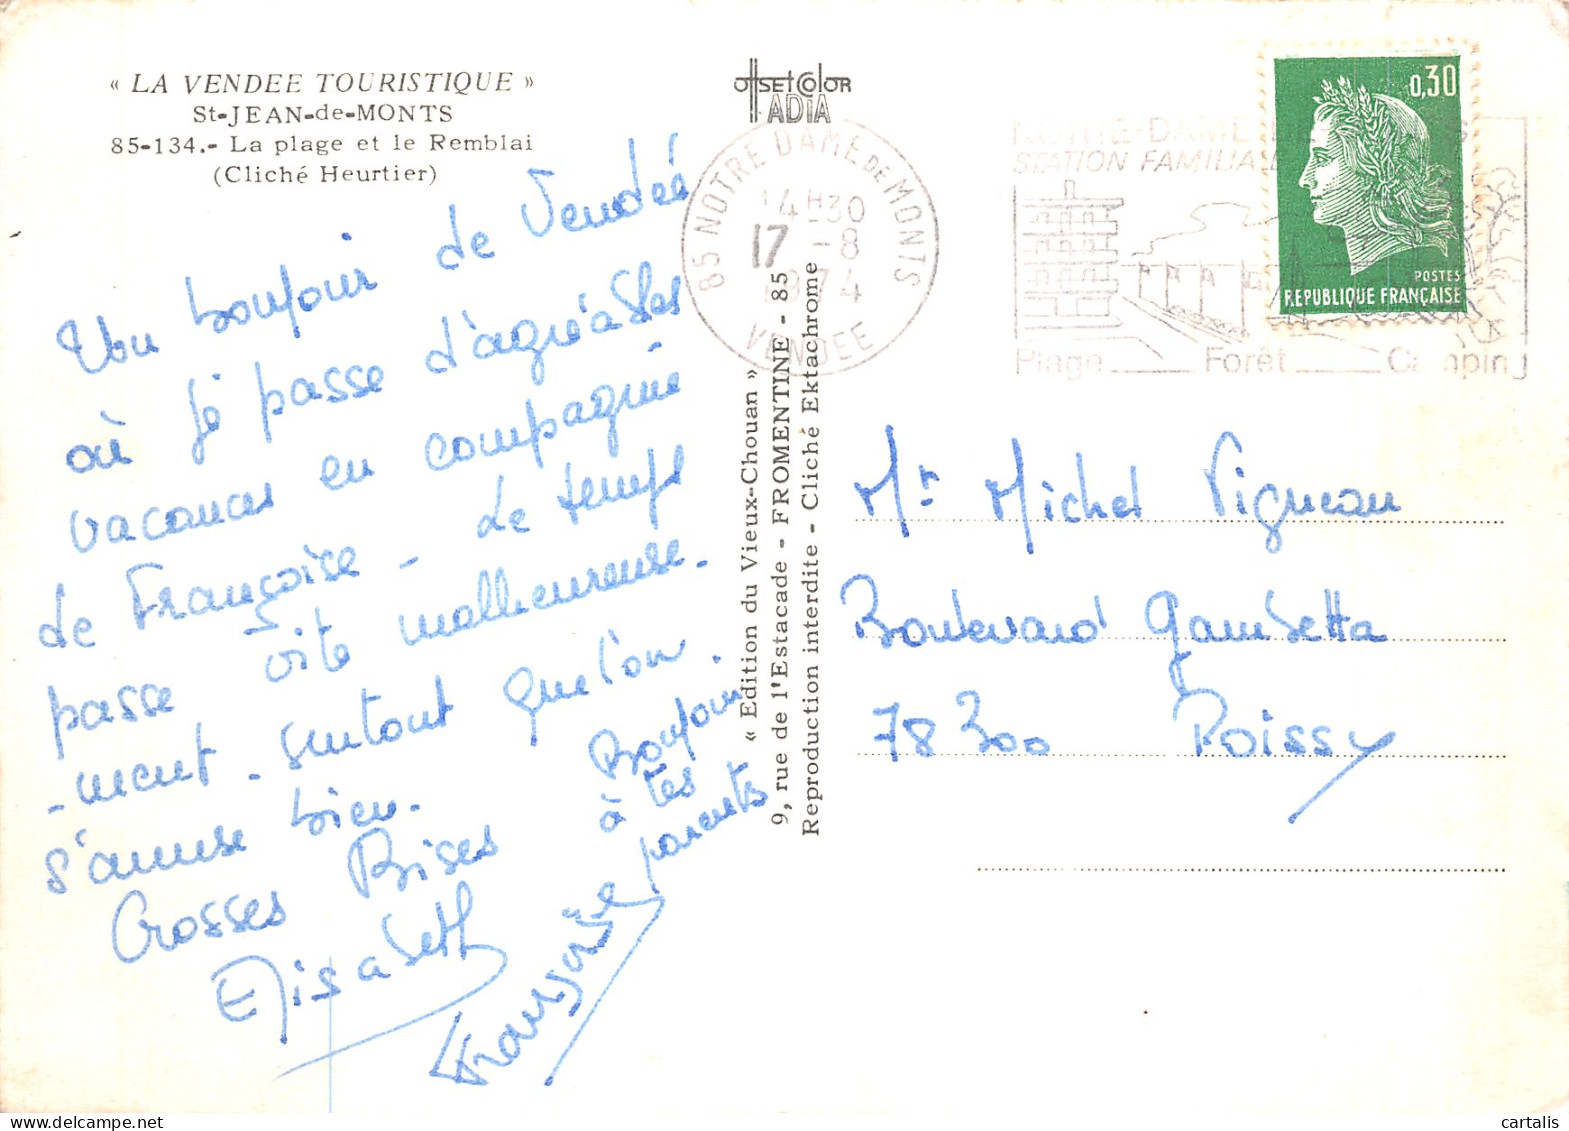 « LA VENDEE TOURISTIQUE »
St-JEAN-de-MONTS
85-134.- La plage et le Remblai
(Cliché Heurtier)
Un bonjour de Vendée
où je passe d'agréables
vacances en compagnie
de Françoise - Le temps
passe vite malheureuse-
-ment - surtout que l'on
s'amuse bien.
Grosses Bises
Elisabeth
Bonjour
à tes
parents
Françoise
OFFSET COLOR
ADIA
85 NOTRE DAME DE MONTS
14H30
17 -8
1974
VENDEE
NOTRE-DAME
STATION FAMILIALE
Plage Forêt Camping
0,30
POSTES
REPUBLIQUE FRANÇAISE
« Edition du Vieux-Chouan »
9, rue de l'Estacade - FROMENTINE - 85
Reproduction interdite - Cliché Ektachrome
Mr Michel Vigneau
Boulevard Gambetta
78300 Poissy
cartalis